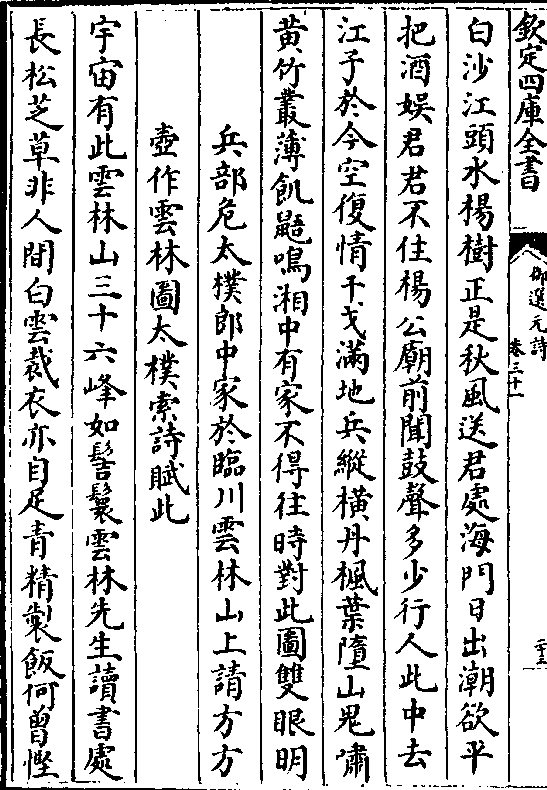 欽定四庫全書
御選元詩
卷三十一
二十三
白沙江頭水楊樹正是秋風送君處海門日出潮欲平
把酒娛君君不住楊公廟前聞鼓聲多少行人此中去
江子於今空復情干戈滿地兵縱橫丹楓葉墮山鬼嘯
黃竹叢薄飢鼯鳴湘中有家不得往時對此圖雙眼明
兵部危太樸郎中家於臨川雲林山上請方方
壺作雲林圖太樸索詩賦此
宇宙有此雲林山三十六峰如髻鬟雲林先生讀書處
長松芝草非人間白雲裁衣亦自足青精製飯何曾慳